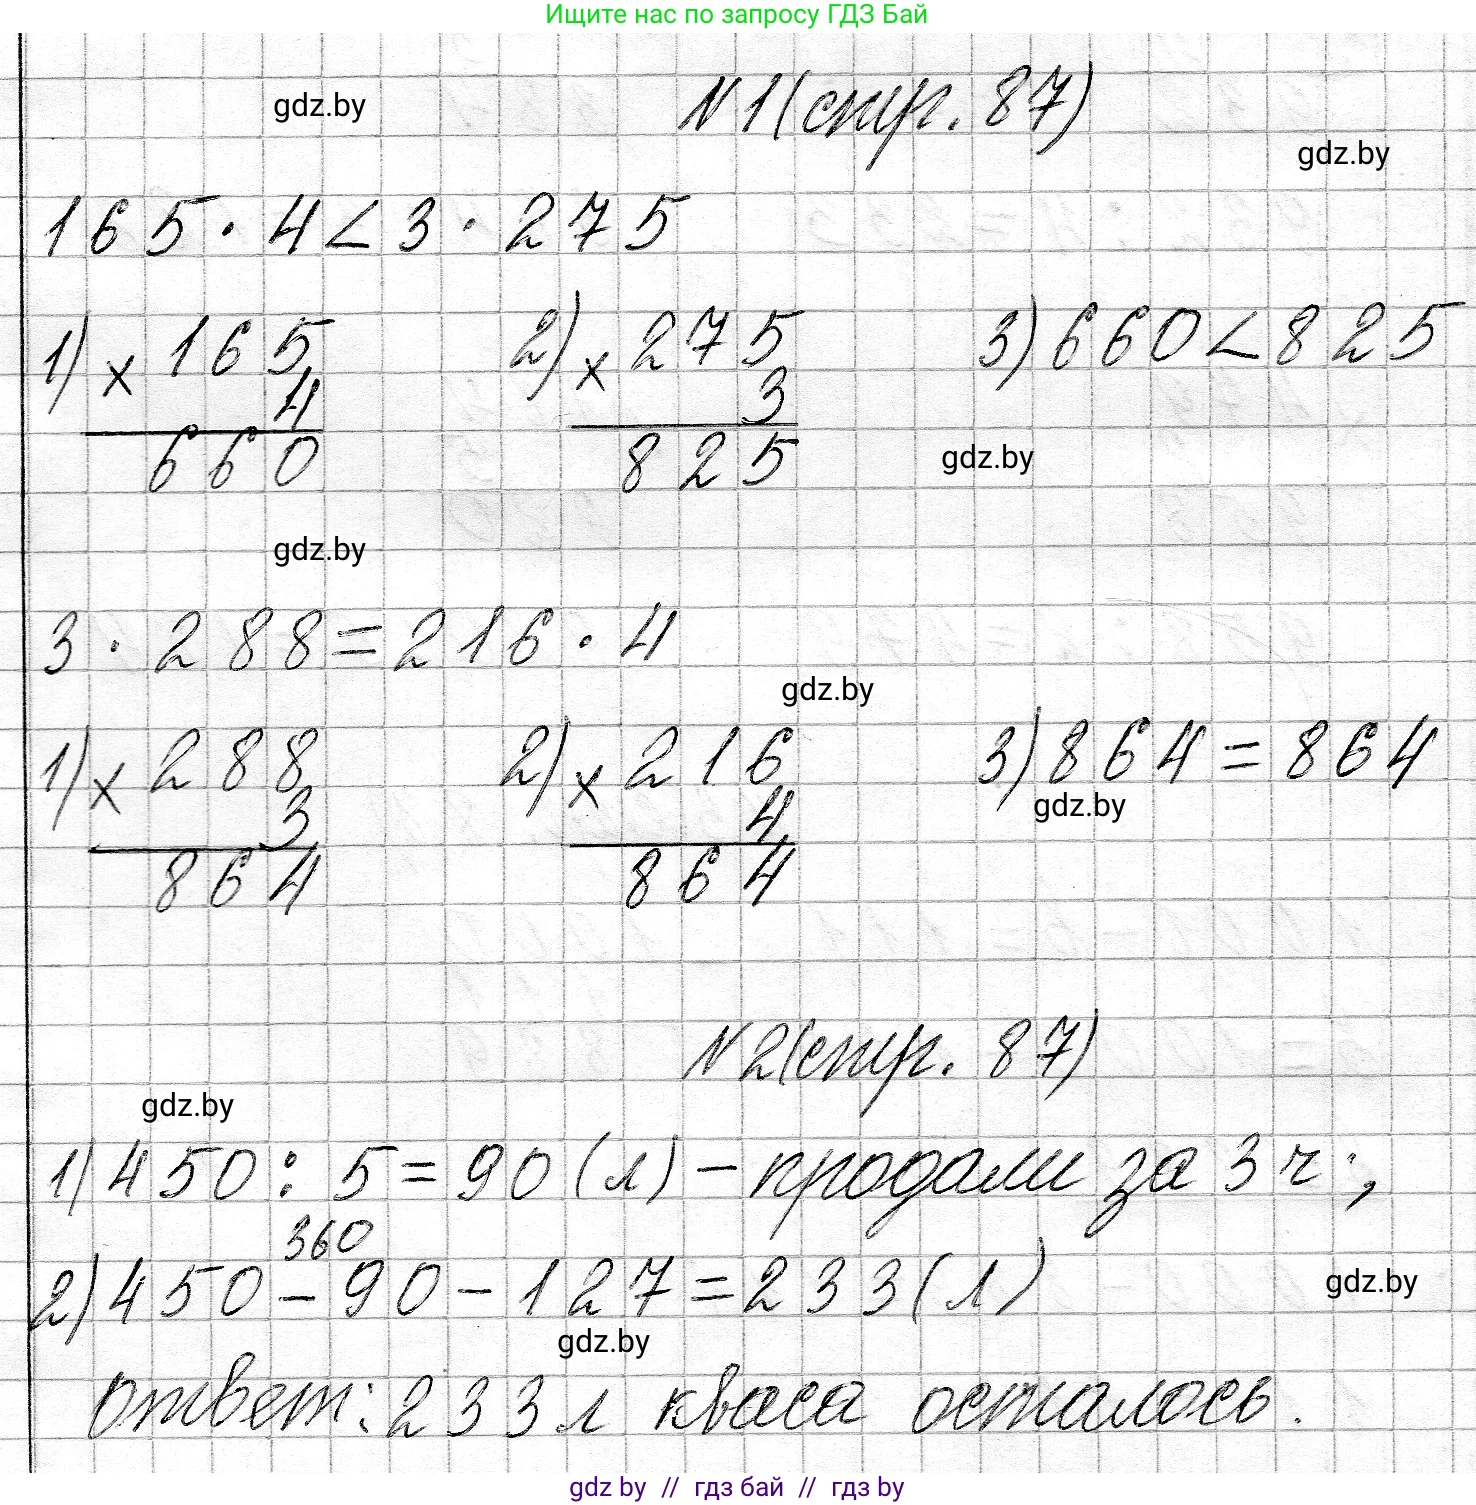 Ищите нас по запросу ГДЗ Бай
gdz.by
№1(стр. 87)
gdz.by
165 · 4 < 3 · 275
1) × 165 2) × 275 3) 660 < 825
4 3
660 825
gdz.by
gdz.by
3 · 288 = 216 · 4
gdz.by
1) × 288 2) × 216 3) 864 = 864
3 4
gdz.by
864 864
№2(стр. 87)
gdz.by
1) 450 : 5 = 90 (л) – продали за 3 ч.;
360
2) 450 – 90 – 127 = 233 (л)
gdz.by
gdz.by
ответ: 233 л кваса осталось.
gdz by // гдз бай // гдз by